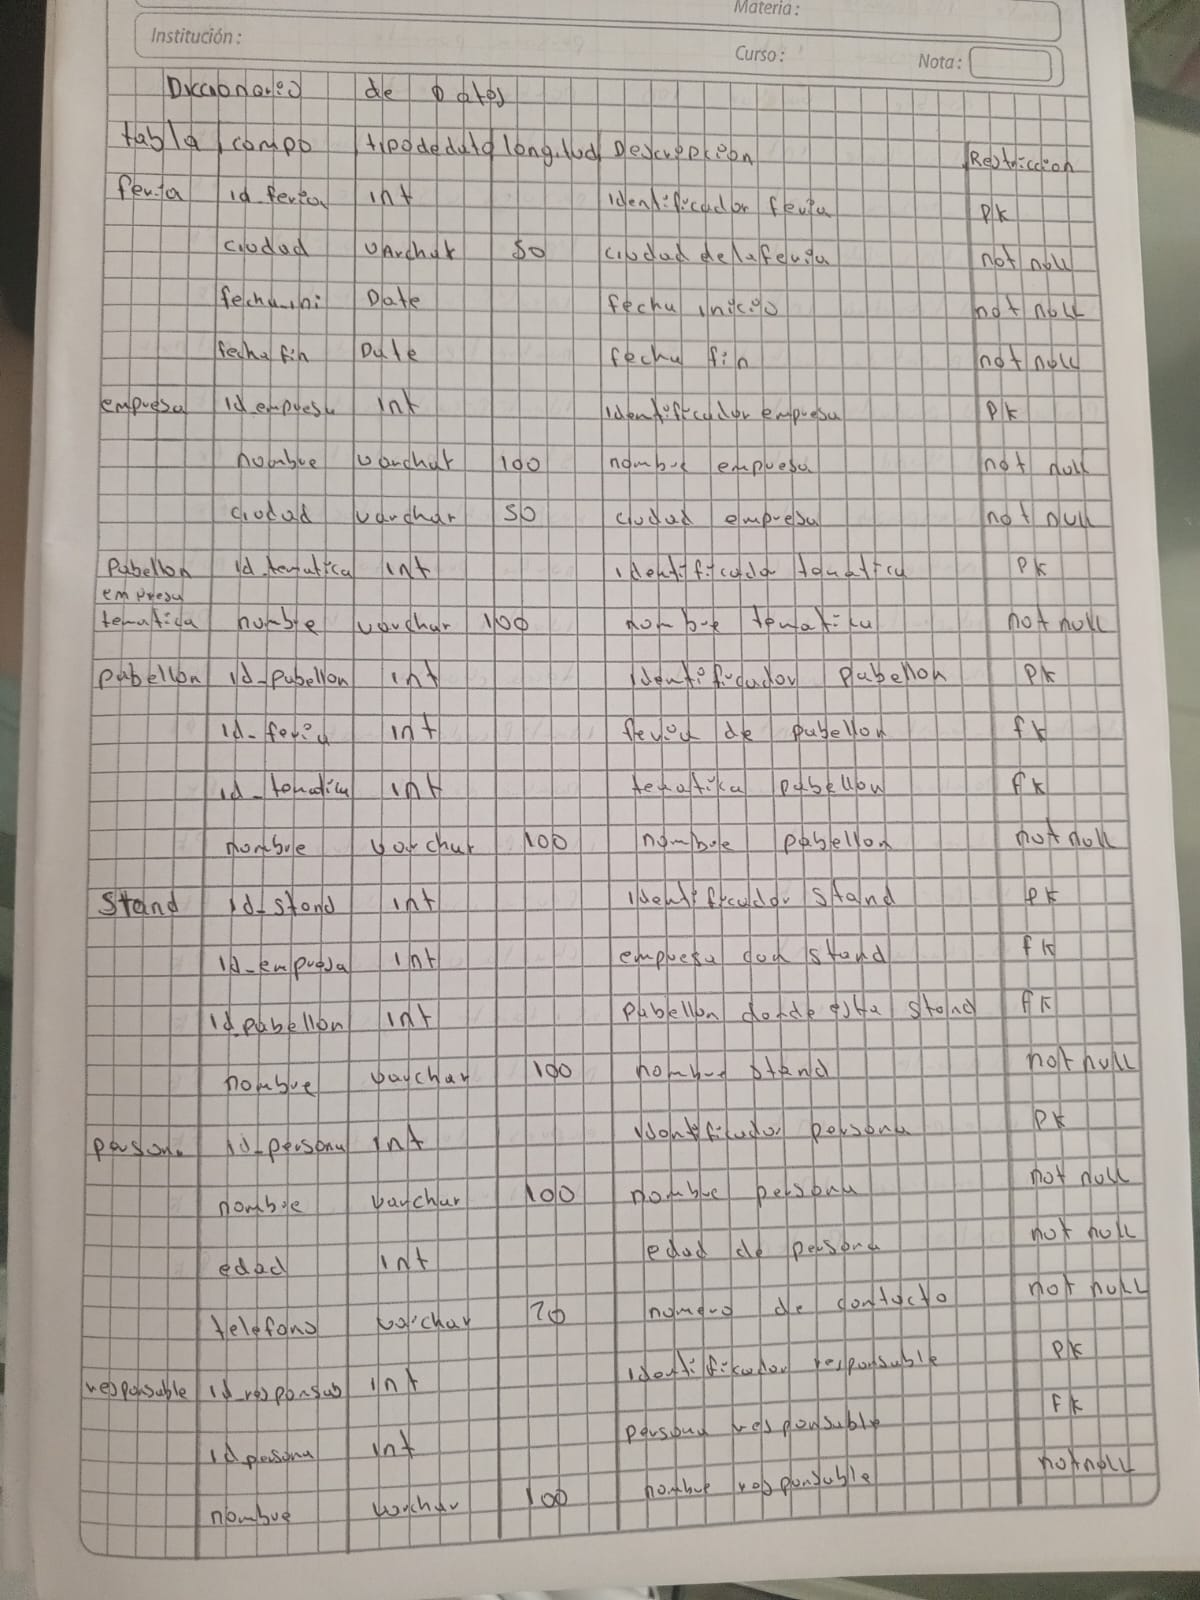 Materia:
Institución:
Curso:
Nota:
Diccionario de Datos
tabla campo tipo de dato longitud Descripcion Restriccion
feria id_feria int identificador feria PK
ciudad varchar 50 ciudad de la feria not null
fecha_ini Date fecha inicio not null
fecha fin Date fecha fin not null
empresa id_empresa int identificador empresa PK
nombre varchar 100 nombre empresa not null
ciudad varchar 50 ciudad empresa not null
Pabellon id_tematica int identificado tematica PK
empresa
tematica nombre varchar 100 nombre tematika not null
pabellon id_pabellon int identificador pabellon PK
id_feria int feria de pabellon fk
id_tematica int tematika pabellon fk
nombre varchar 100 nombre pabellon not null
Stand id_stand int identificador stand PK
id_empresa int empresa con stand fk
id_pabellon int pabellon donde esta stand fk
nombre varchar 100 nombre stand not null
person. id_persona int identificador persona PK
nombre varchar 100 nombre persona not null
edad int edad de persona not null
telefono varchar 20 numero de contacto not null
responsable id_responsab int identifikador responsable PK
id_persona int persona responsable FK
nombre varchar 100 nombre responsable not null